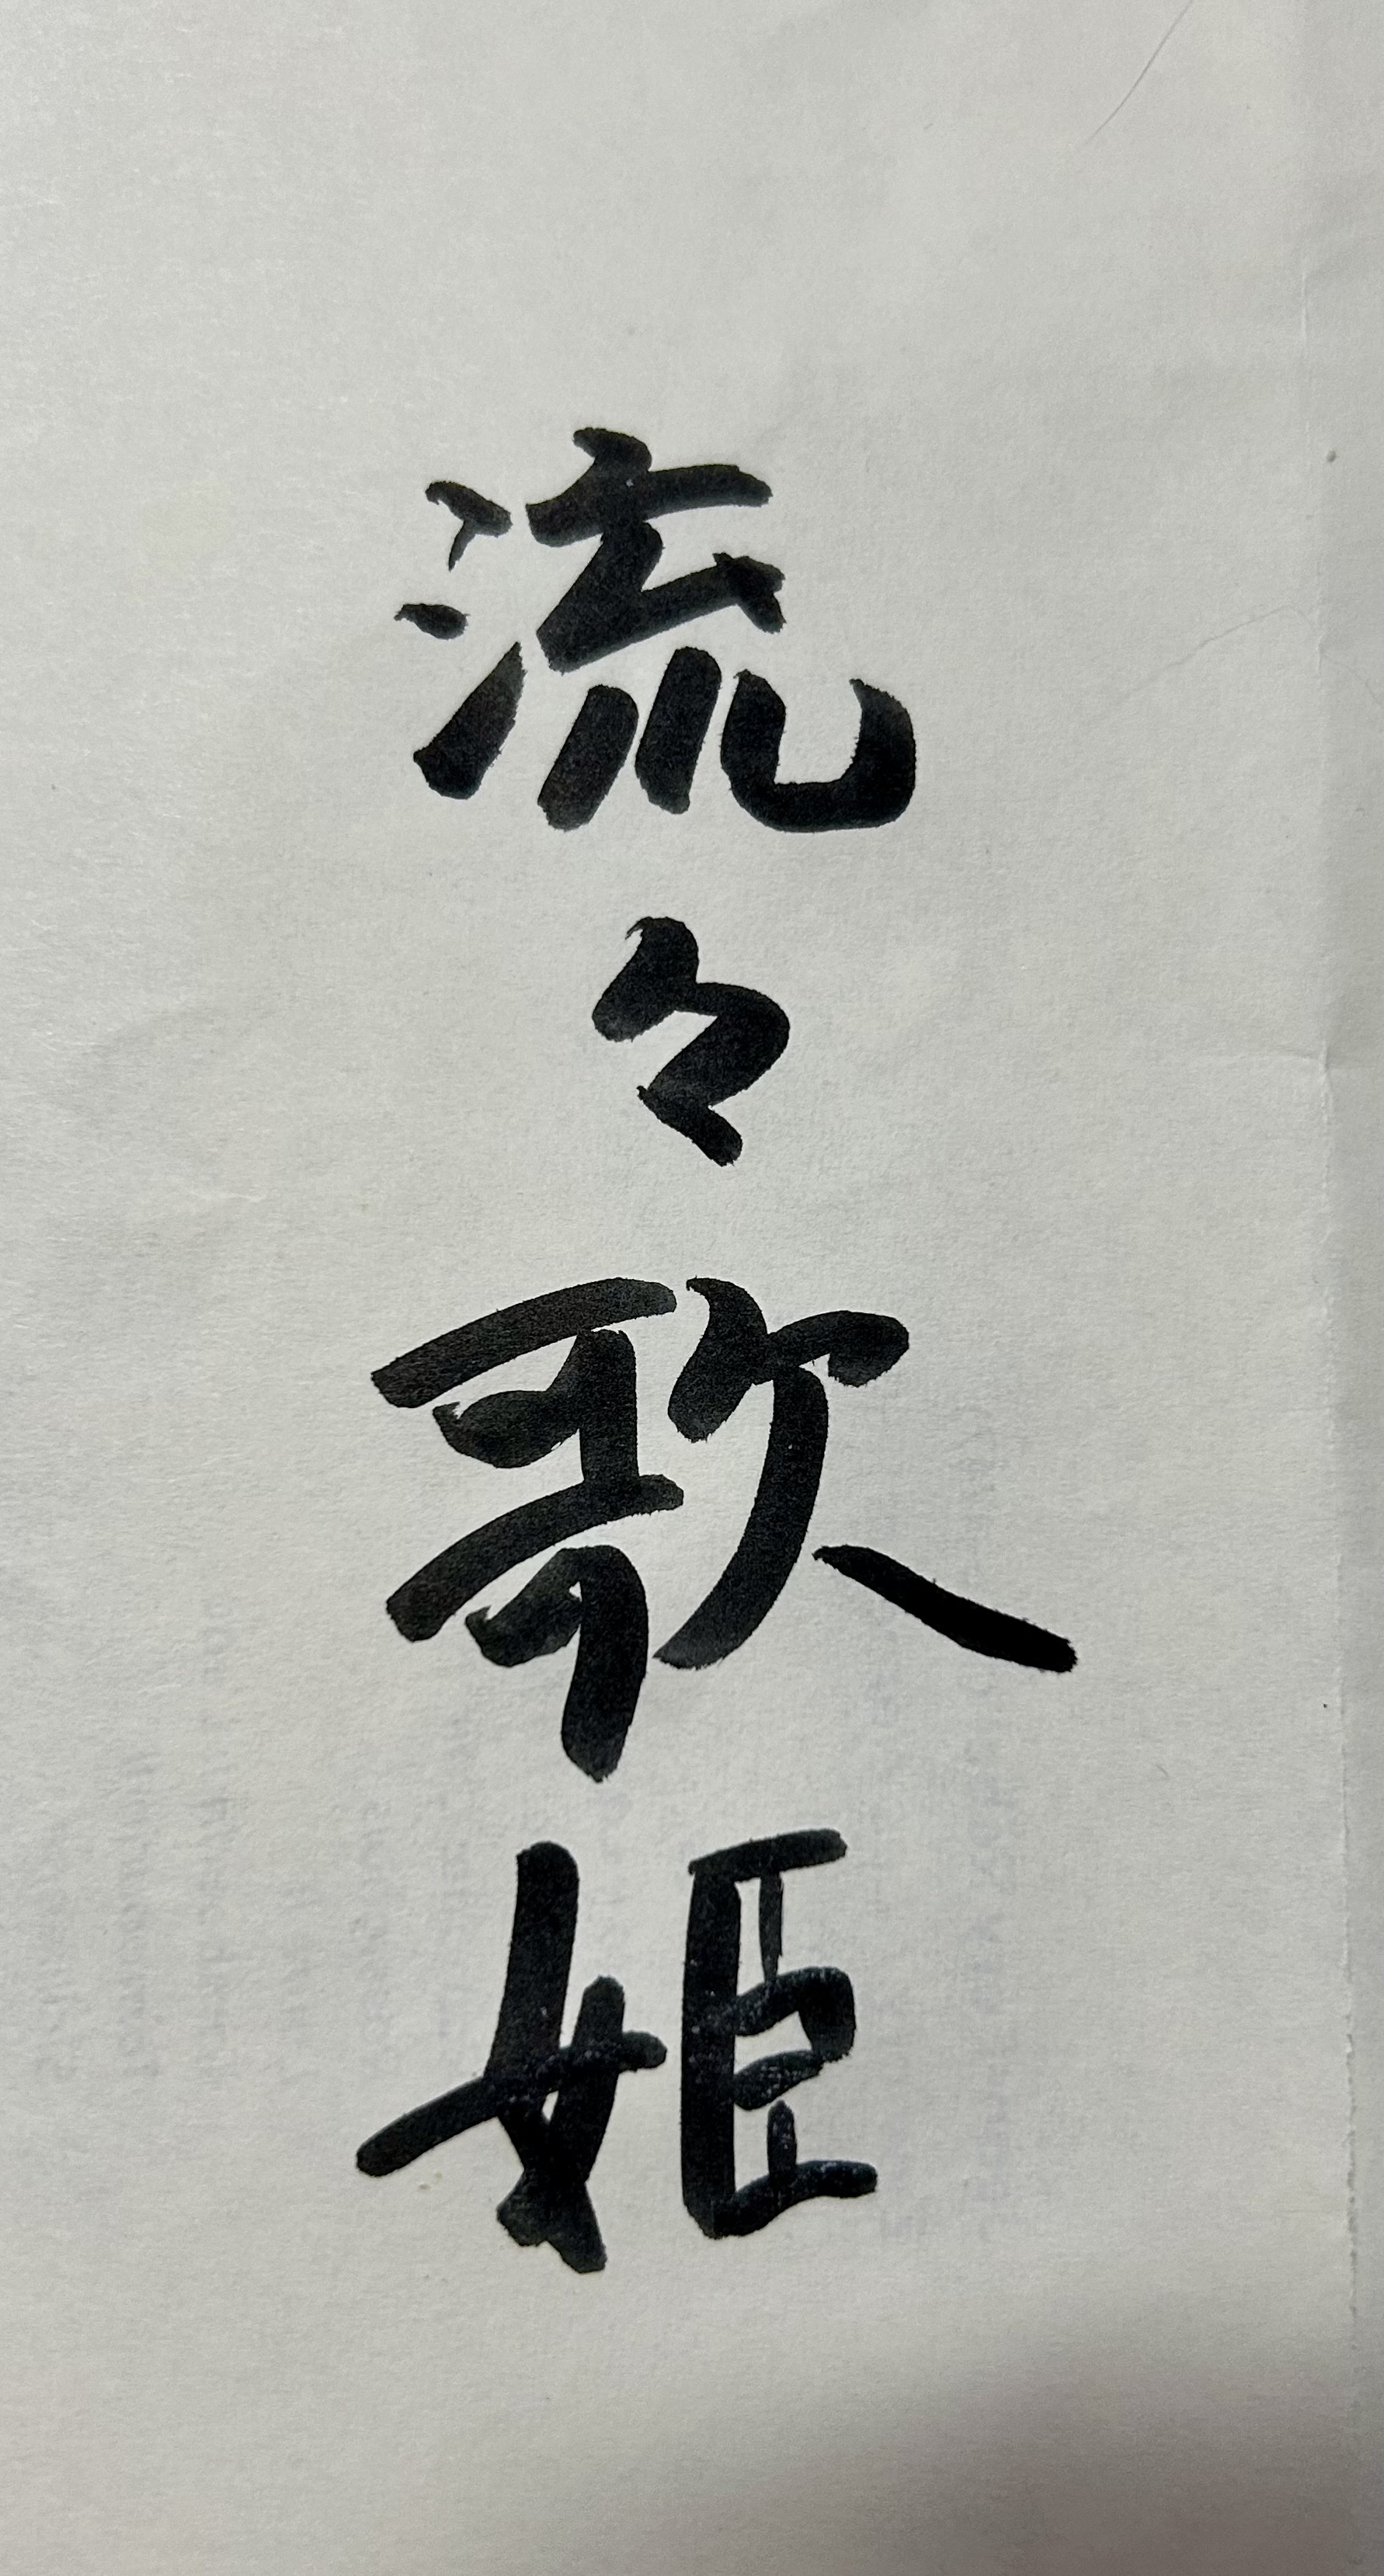 流々歌姫